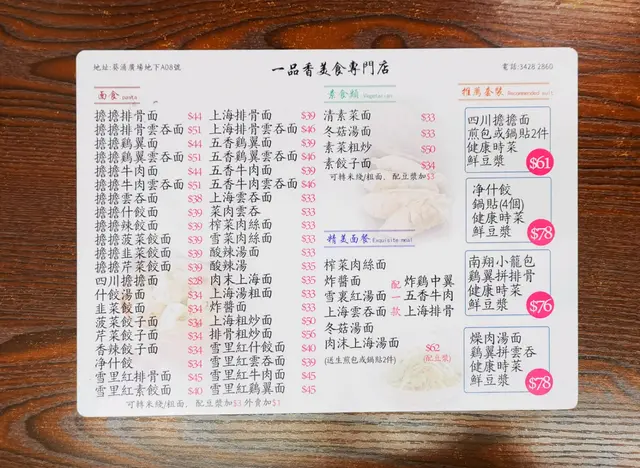 地址:葵涌廣場地下A08號
一品香美食專門店
電話:3428 2860
面食 pasta
擔擔排骨面 $44
擔擔排骨雲吞面 $51
擔擔鷄翼面 $44
擔擔鷄翼雲吞面 $51
擔擔牛肉面 $44
擔擔牛肉雲吞面 $51
擔擔雲吞面 $38
擔擔什餃面 $39
擔擔辣餃面 $39
擔擔菠菜餃面 $39
擔擔韭菜餃面 $39
擔擔芹菜餃面 $39
四川擔擔面 $28
什餃湯面 $34
韭菜餃面 $34
菠菜餃子面 $34
芹菜餃子面 $34
香辣餃子面 $34
净什餃 $34
雪里紅排骨面 $45
雪里紅素餃面 $40
上海排骨面 $39
上海排骨雲吞面 $46
五香鷄翼面 $39
五香鷄翼雲吞面 $46
五香牛肉面 $39
五香牛肉雲吞面 $46
上海雲吞面 $33
菜肉雲吞 $33
榨菜肉絲面 $33
雪菜肉絲面 $33
酸辣湯面 $33
酸辣湯 $35
肉末上海面 $35
上海湯粗面 $33
炸醬面 $33
上海粗炒面 $50
排骨粗炒面 $56
雪里紅什餃面 $40
雪里紅雲吞面 $39
雪里紅牛肉面 $45
雪里紅鷄翼面 $45
可轉米綫/粗面、配豆漿加$3 外賣加$1
素食類 Vegetarian
清素菜面 $33
冬菇湯面 $33
素菜粗炒 $50
素餃子面 $34
可轉米綫/粗面、配豆漿加$3
精美面餐 Exquisite meal
榨菜肉絲面
炸醬面
雪裏紅湯面
上海雲吞面
冬菇湯面
肉沫上海湯面
(送生煎包或鍋貼2件)
配一款
炸鷄中翼
五香牛肉
上海排骨
$62
(配豆漿)
推薦套裝 Recommended suit
四川擔擔面
煎包或鍋貼2件
健康時菜
鮮豆漿
$61
净什餃
鍋貼(4個)
健康時菜
鮮豆漿
$78
南翔小籠包
鷄翼拼排骨
健康時菜
鮮豆漿
$76
燥肉湯面
鷄翼拼雲吞
健康時菜
鮮豆漿
$78